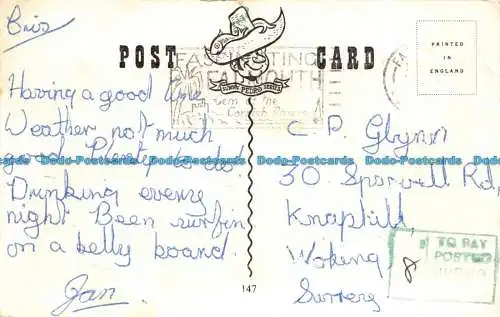 Bris
POST CARD
PRINTED
IN
ENGLAND
FASCINATING
FALMOUTH
Gem of the
Cornish Riviera
Having a good time
Weather not much
good Plenty to do!
Drinking every
night Been surfin
on a belly board.
Jan.
C P Glynn
30 Sparvell Rd,
Knaphill,
Woking
Surrey
TO PAY
POSTED
147
Dodo-Postcards Dodo-Postcards Dodo-Postcards Dodo-Postcards